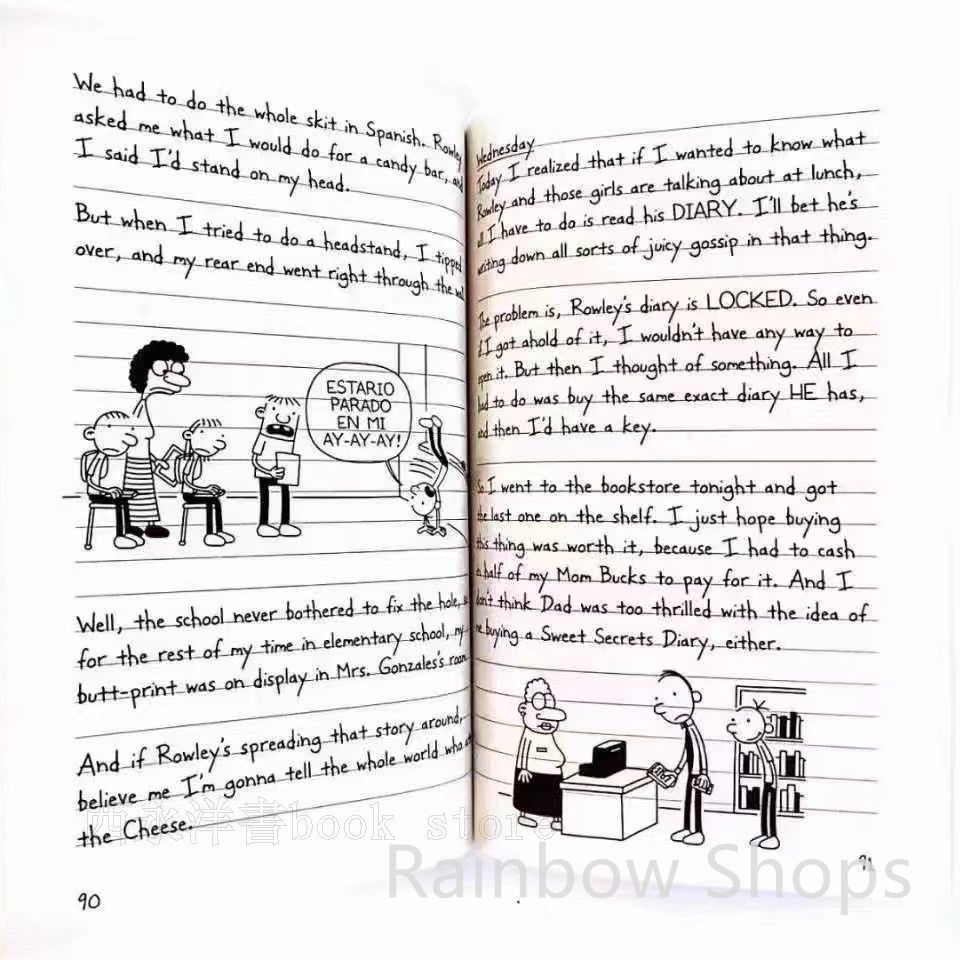 We had to do the whole skit in Spanish. Rowley
asked me what I would do for a candy bar, and
I said I'd stand on my head.
But when I tried to do a headstand, I tipped
over, and my rear end went right through the
ESTARIO
PARADO
EN MI
AY-AY-AY!
Well, the school never bothered to fix the hole,
for the rest of my time in elementary school, my
butt-print was on display in Mrs. Gonzales's room.
And if Rowley's spreading that story around,
believe me I'm gonna tell the whole world who
the Cheese.
90
Wednesday
Today I realized that if I wanted to know what
Rowley and those girls are talking about at lunch,
all I have to do is read his DIARY. I'll bet he's
writing down all sorts of juicy gossip in that thing.
The problem is, Rowley's diary is LOCKED. So even
if I got ahold of it, I wouldn't have any way to
open it. But then I thought of something. All I
had to do was buy the same exact diary HE has,
and then I'd have a key.
So I went to the bookstore tonight and got
the last one on the shelf. I just hope buying
this thing was worth it, because I had to cash
half of my Mom Bucks to pay for it. And I
don't think Dad was too thrilled with the idea of
me buying a Sweet Secrets Diary, either.
91
洋書book store
Rainbow Shops